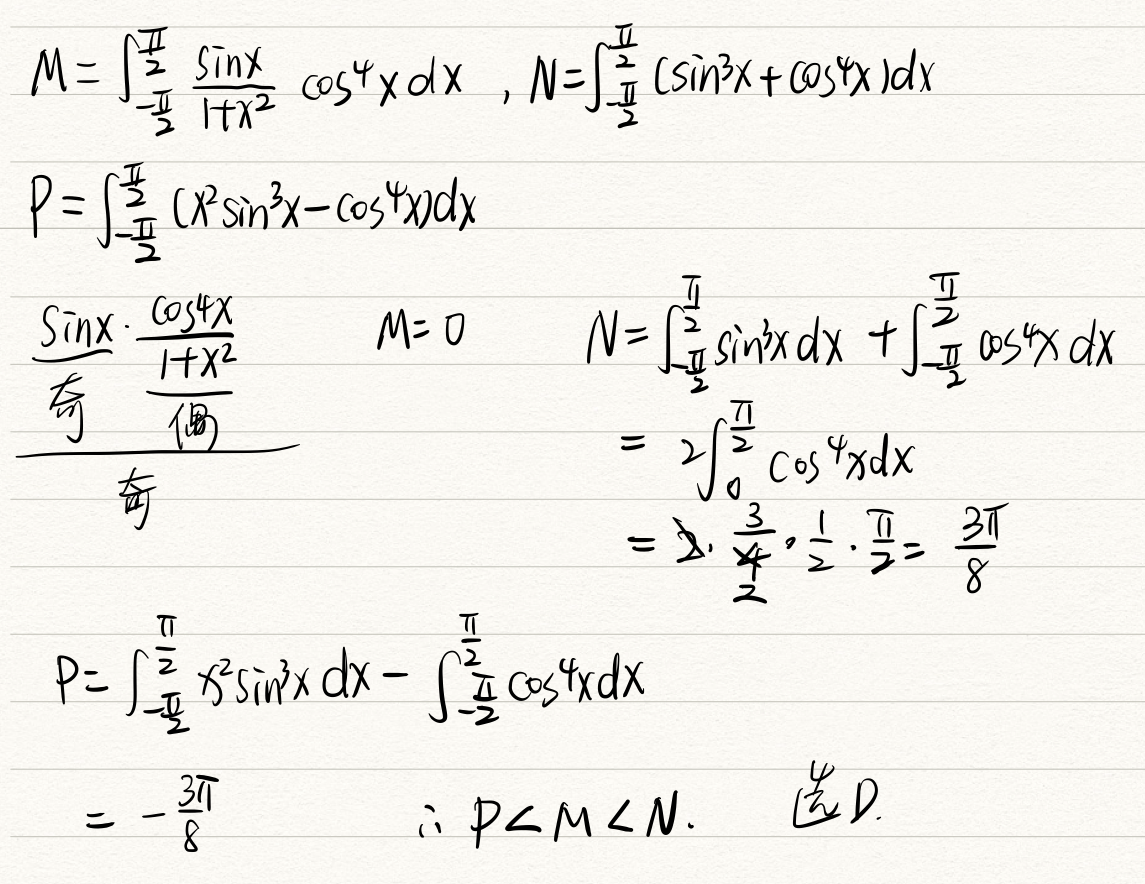 M = ∫_{-π/2}^{π/2} sinx/(1+x²) cos⁴x dx , N = ∫_{-π/2}^{π/2} (sin³x + cos⁴x)dx
P = ∫_{-π/2}^{π/2} (x²sin³x - cos⁴x)dx
sinx · cos⁴x/(1+x²)
奇 偶
奇
M = 0
N = ∫_{-π/2}^{π/2} sin³x dx + ∫_{-π/2}^{π/2} cos⁴x dx
= 2∫_0^{π/2} cos⁴x dx
= 2 · 3/4 · 1/2 · π/2 = 3π/8
2
P = ∫_{-π/2}^{π/2} x²sin³x dx - ∫_{-π/2}^{π/2} cos⁴x dx
= -3π/8 ∴ P < M < N. 选D.